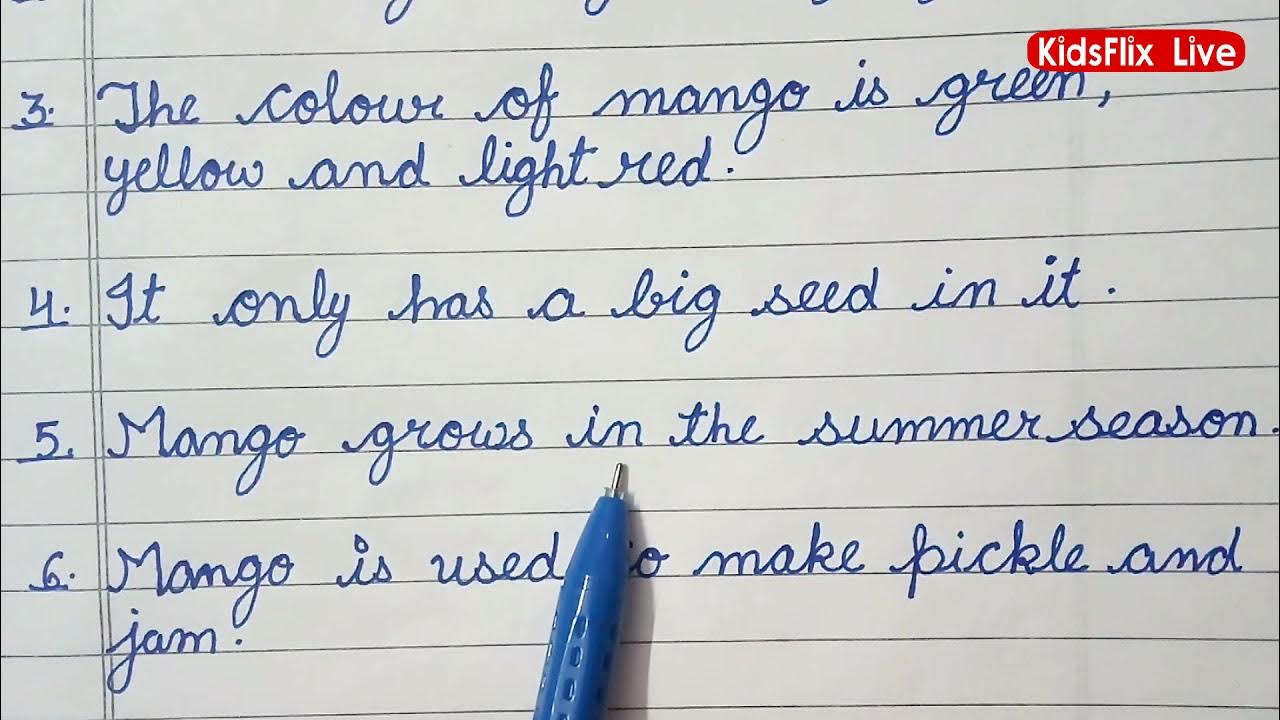 KidsFlix Live
3. The colour of mango is green,
yellow and light red.
4. It only has a big seed in it.
5. Mango grows in the summer season.
6. Mango is used to make pickle and
jam.